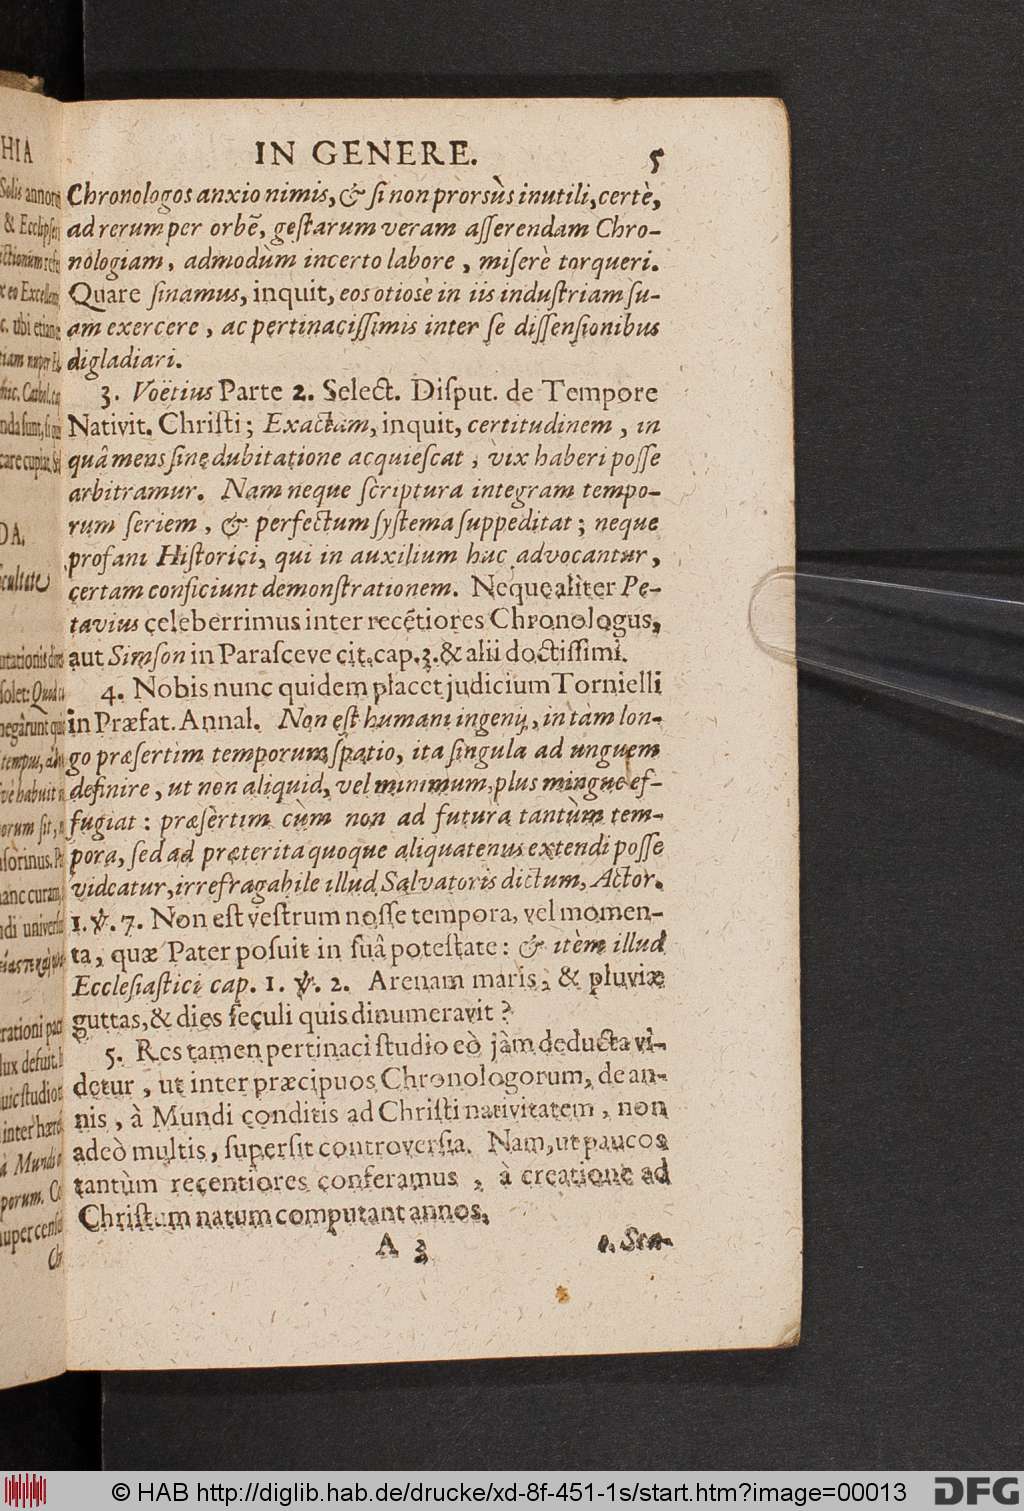 IN GENERE. 5
Chronologos anxio nimis, & ſi non prorsùs inutili, certè,
ad rerum per orbē, geſtarum veram aſſerendam Chro-
nologiam, admodùm incerto labore, miſerè torqueri.
Quare ſinamus, inquit, eos otiosè in iis induſtriam ſu-
am exercere, ac pertinaciſſimis inter ſe diſſenſionibus
digladiari.
3. Voëtius Parte 2. Select. Diſput. de Tempore
Nativit. Chriſti; Exactam, inquit, certitudinem, in
quâ mens ſine dubitatione acquieſcat, vix haberi poſſe
arbitramur. Nam neque ſcriptura integram tempo-
rum ſeriem, & perfectum ſyſtema ſuppeditat; neque
profani Hiſtorici, qui in auxilium huc advocantur,
certam conficiunt demonſtrationem. Neque aliter Pe-
tavius celeberrimus inter recētiores Chronologus,
aut Simſon in Paraſceve cit. cap. 3. & alii doctiſſimi.
4. Nobis nunc quidem placet judicium Tornielli
in Præfat. Annal. Non eſt humani ingenij, in tam lon-
go præſertim temporum ſpatio, ita ſingula ad unguem
definire, ut non aliquid, vel minimum, plus minúſve ef-
fugiat: præſèrtim cùm non ad futura tantùm tem-
pora, ſed ad præterita quoque aliquatenus extendi poſſe
videatur, irrefragabile illud Salvatoris dictum, Actor.
1. ℣. 7. Non eſt veſtrum noſſe tempora, vel momen-
ta, quæ Pater poſuit in ſuâ poteſtate: & itèm illud
Eccleſiaſtici cap. 1. ℣. 2. Arenam maris, & pluviæ
guttas, & dies ſeculi quis dinumeravit?
5. Res tamen pertinaci ſtudio eò jàm deducta vi-
detur, ut inter præcipuos Chronologorum, de an-
nis, à Mundi conditis ad Chriſti nativitatem, non
adeò multis, ſuperſit controverſia. Nam, ut paucos
tantùm recentiores conferamus, à creatione ad
Chriſtum natum computant annos,
A 3
HIA
Solis annorū
& Eclipſes
x eo Excellent
c. ubi etiam
tiam nuper
nda ſunt, ſi qui
care cupiat,
DA.
ſolet: Quod
negârunt qui
orum ſit,
hanc curam,
ndi univerſi
lux defuit.
à Mundi
porum.
© HAB http://diglib.hab.de/drucke/xd-8f-451-1s/start.htm?image=00013
DFG